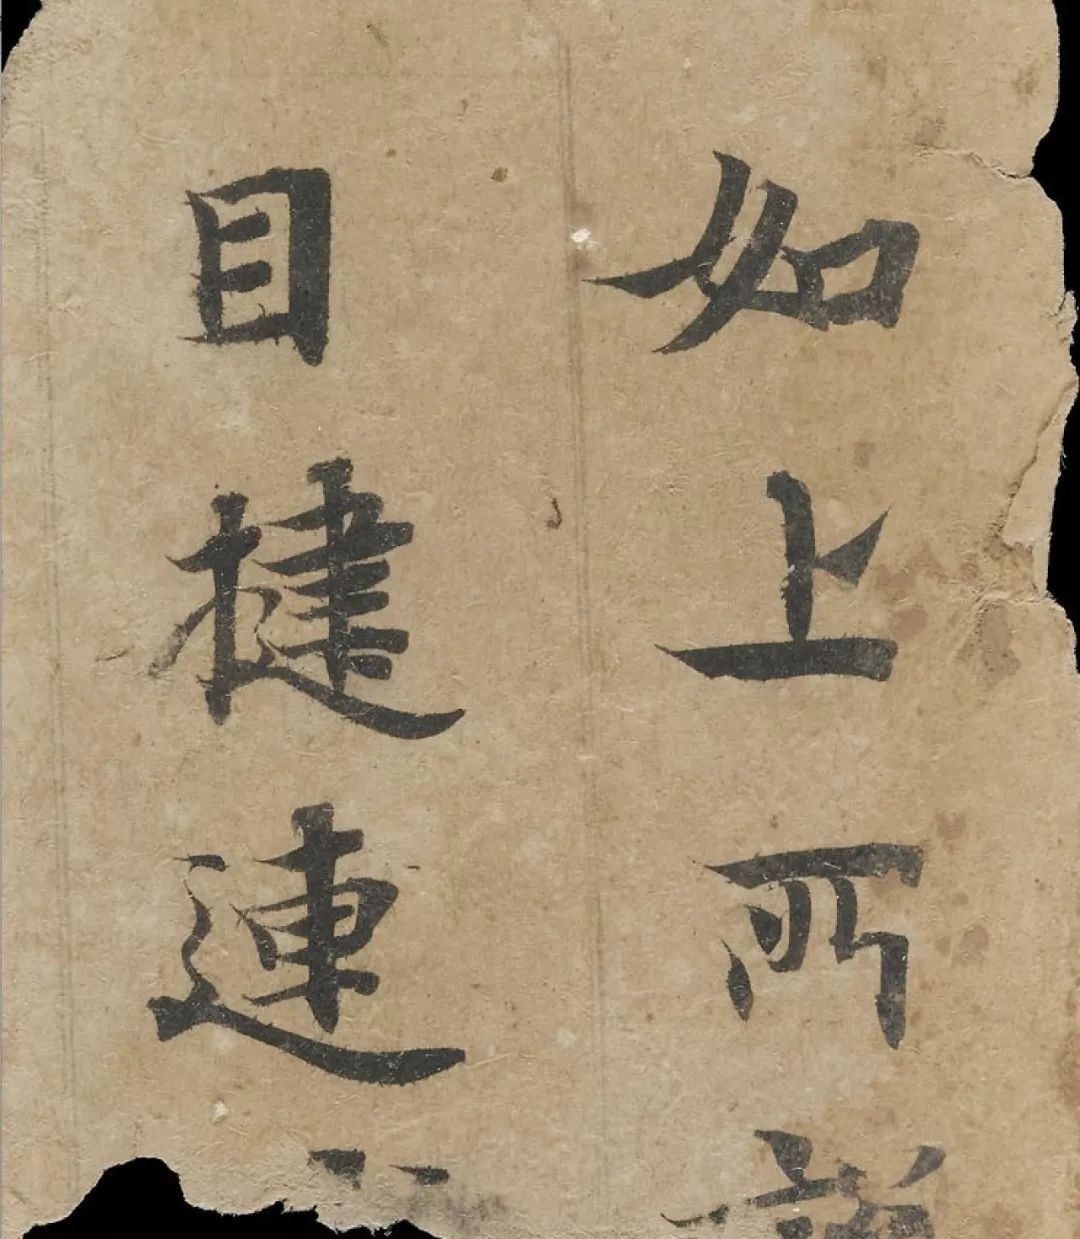 如上所
目揵連